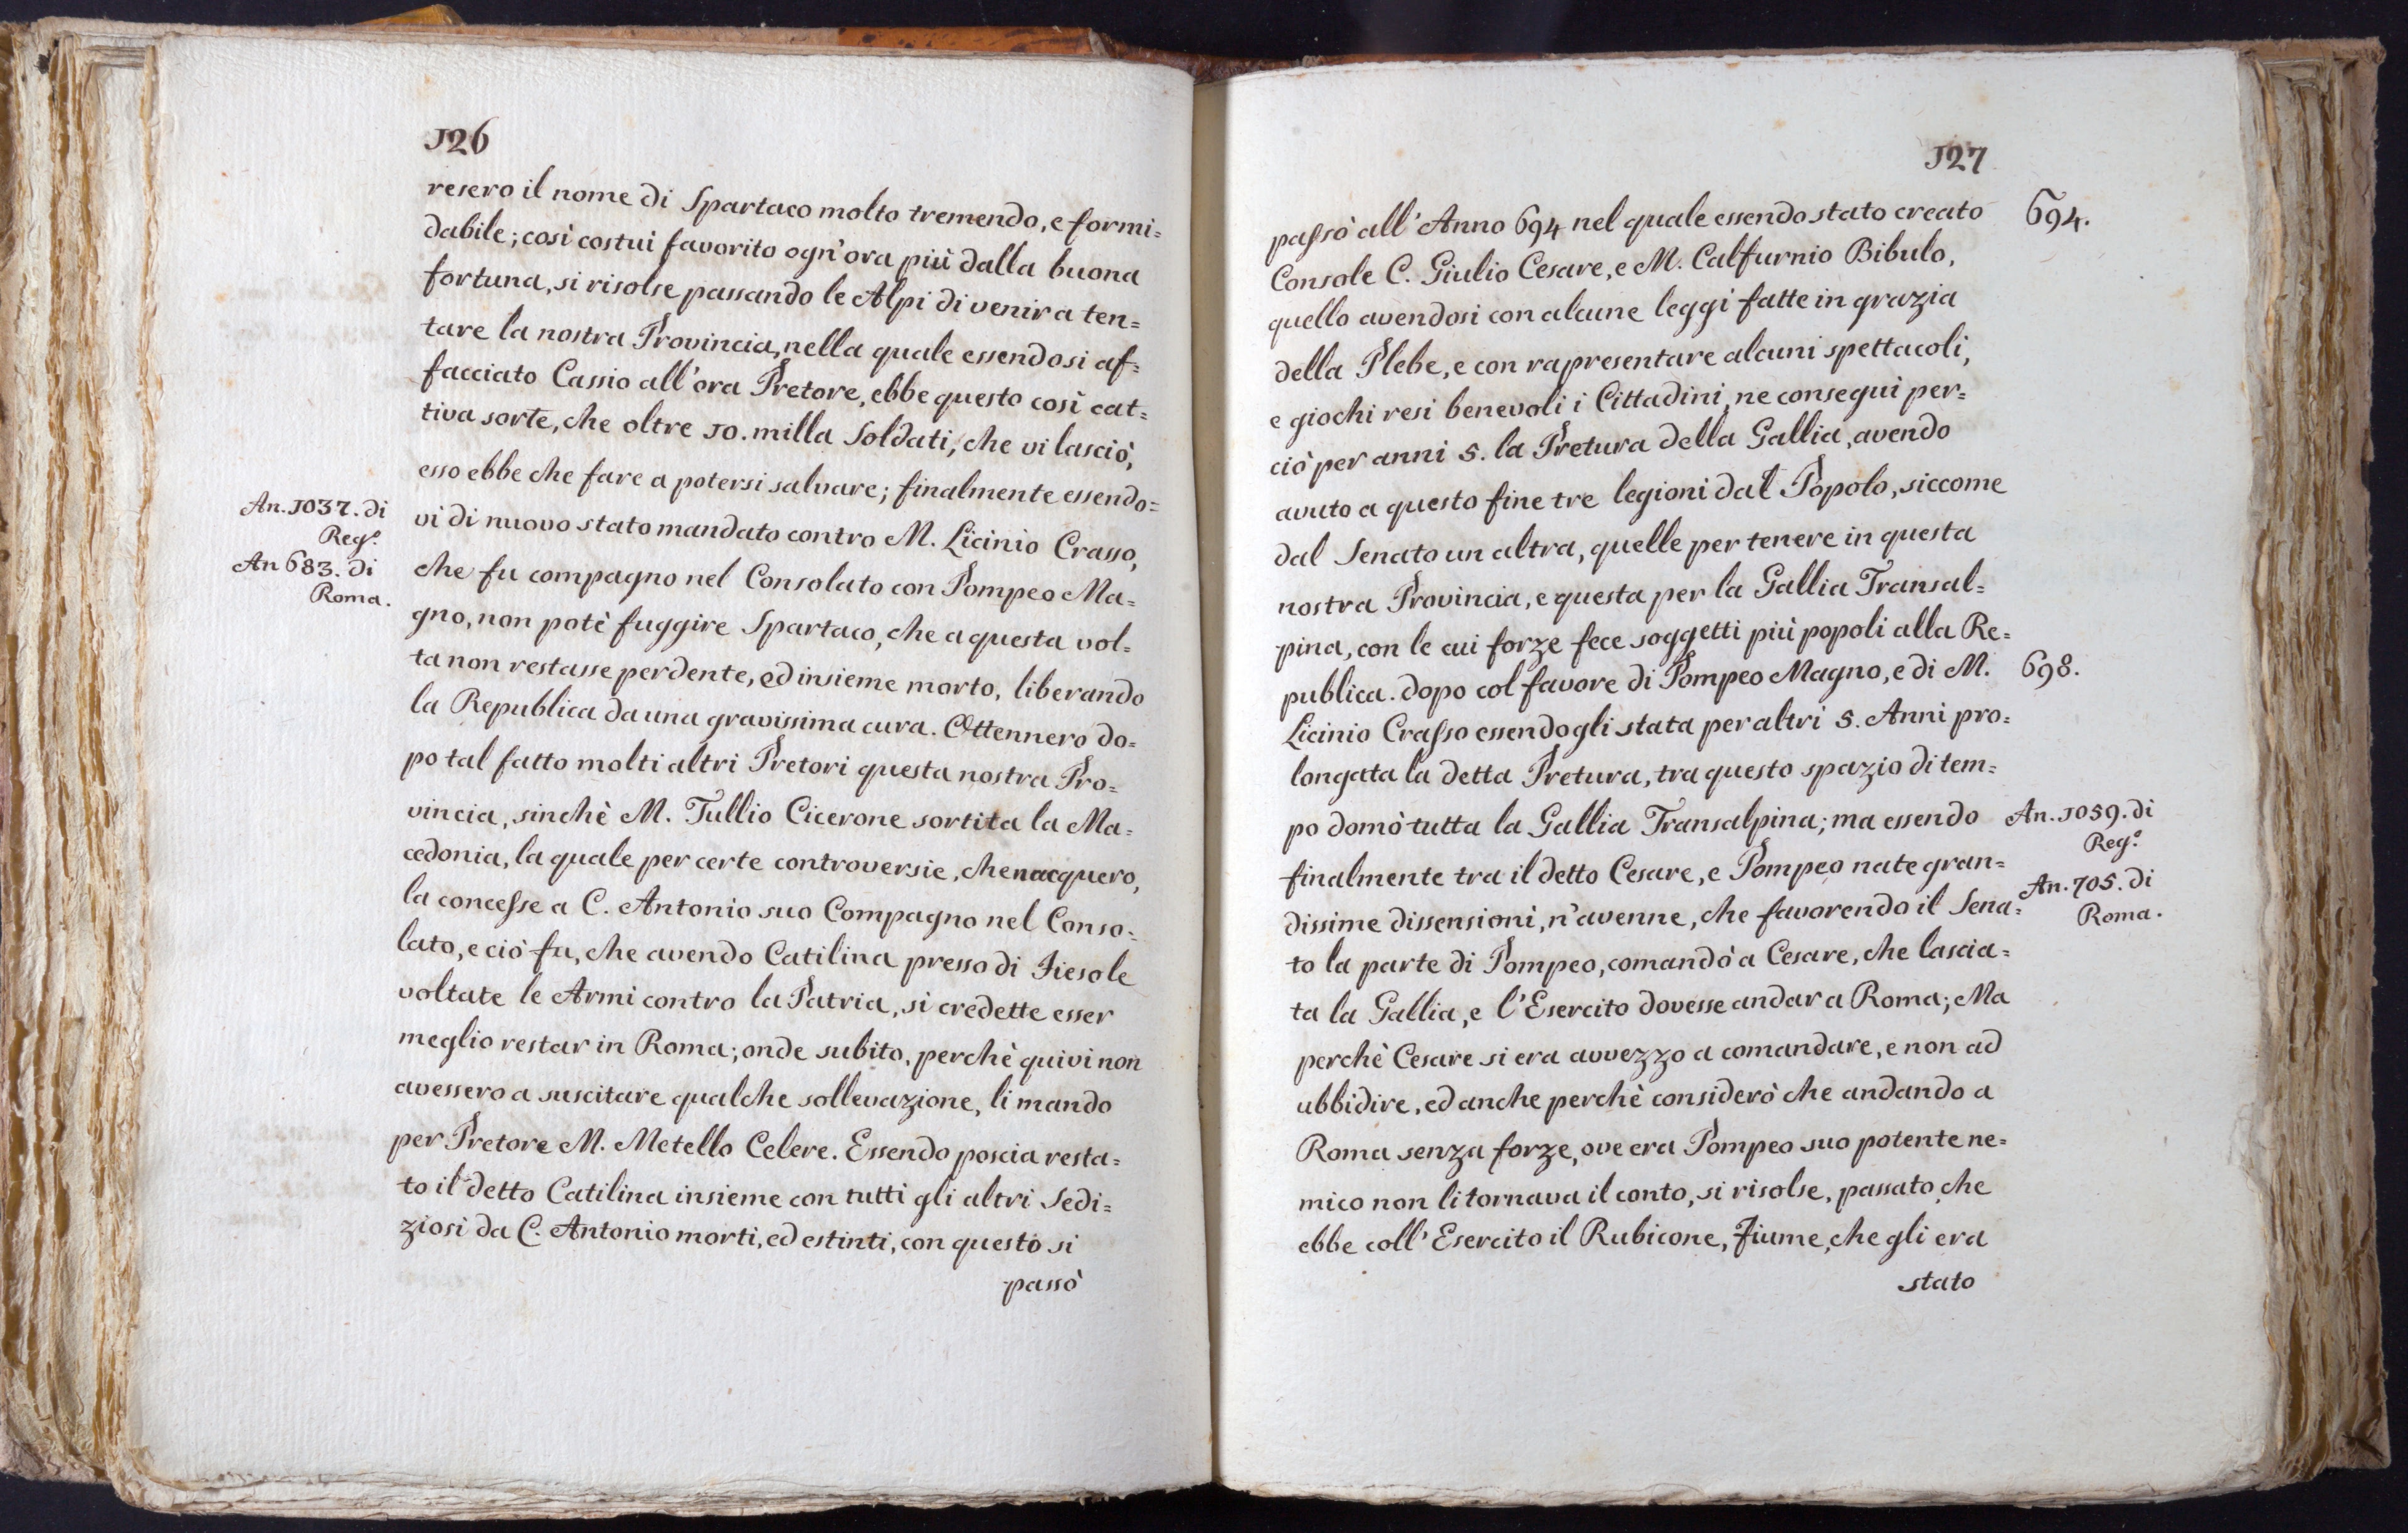 126
resero il nome di Spartaco molto tremendo, e formi=
dabile; così costui favorito ogn'ora più dalla buona
fortuna, si risolse passando le Alpi di venir a ten=
tare la nostra Provincia, nella quale essendosi af=
facciato Cassio all'ora Pretore, ebbe questo così cat=
tiva sorte, che oltre 10. milla Soldati, che vi lasciò,
esso ebbe che fare a potersi salvare; finalmente essendo=
An. 1037. di
Reg.º
vi di nuovo stato mandato contro M. Licinio Crasso,
An 683. di
Roma.
che fu compagno nel Consolato con Pompeo Ma=
gno, non potè fuggire Spartaco, che a questa vol=
ta non restasse perdente, ed insieme morto, liberando
la Republica da una gravissima cura. Ottennero do=
po tal fatto molti altri Pretori questa nostra Pro=
vincia, sinchè M. Tullio Cicerone sortita la Ma=
cedonia, la quale per certe controversie, che nacquero,
la concesse a C. Antonio suo Compagno nel Conso=
lato, e ciò fu, che avendo Catilina presso di Fiesole
voltate le Armi contro la Patria, si credette esser
meglio restar in Roma; onde subito, perchè quivi non
avessero a suscitare qualche sollevazione, li mando
per Pretore M. Metello Celere. Essendo poscia resta=
to il detto Catilina insieme con tutti gli altri Sedi=
ziosi da C. Antonio morti, ed estinti, con questo si
passò
127
passò all'Anno 694 nel quale essendo stato creato
694.
Console C. Giulio Cesare, e M. Calfurnio Bibulo,
quello avendosi con alcune leggi fatte in grazia
della Plebe, e con rapresentare alcuni spettacoli,
e giochi resi benevoli i Cittadini, ne conseguì per=
ciò per anni 5. la Pretura della Gallia, avendo
avuto a questo fine tre legioni dal Popolo, siccome
dal Senato un altra, quelle per tenere in questa
nostra Provincia, e questa per la Gallia Transal=
pina, con le cui forze fece soggetti più popoli alla Re=
publica. dopo col favore di Pompeo Magno, e di M.
698.
Licinio Crasso essendogli stata per altri 5. Anni pro=
longata la detta Pretura, tra questo spazio di tem=
po domò tutta la Gallia Transalpina; ma essendo
An. 1059. di
Reg.º
finalmente tra il detto Cesare, e Pompeo nate gran=
An. 705. di
Roma.
dissime dissensioni, n'avenne, che favorendo il Sena=
to la parte di Pompeo, comandò a Cesare, che lascia=
ta la Gallia, e l'Esercito dovesse andar a Roma; Ma
perchè Cesare si era avvezzo a comandare, e non ad
ubbidire, ed anche perchè considerò che andando a
Roma senza forze, ove era Pompeo suo potente ne=
mico non li tornava il conto, si risolse, passato che
ebbe coll'Esercito il Rubicone, fiume, che gli era
stato